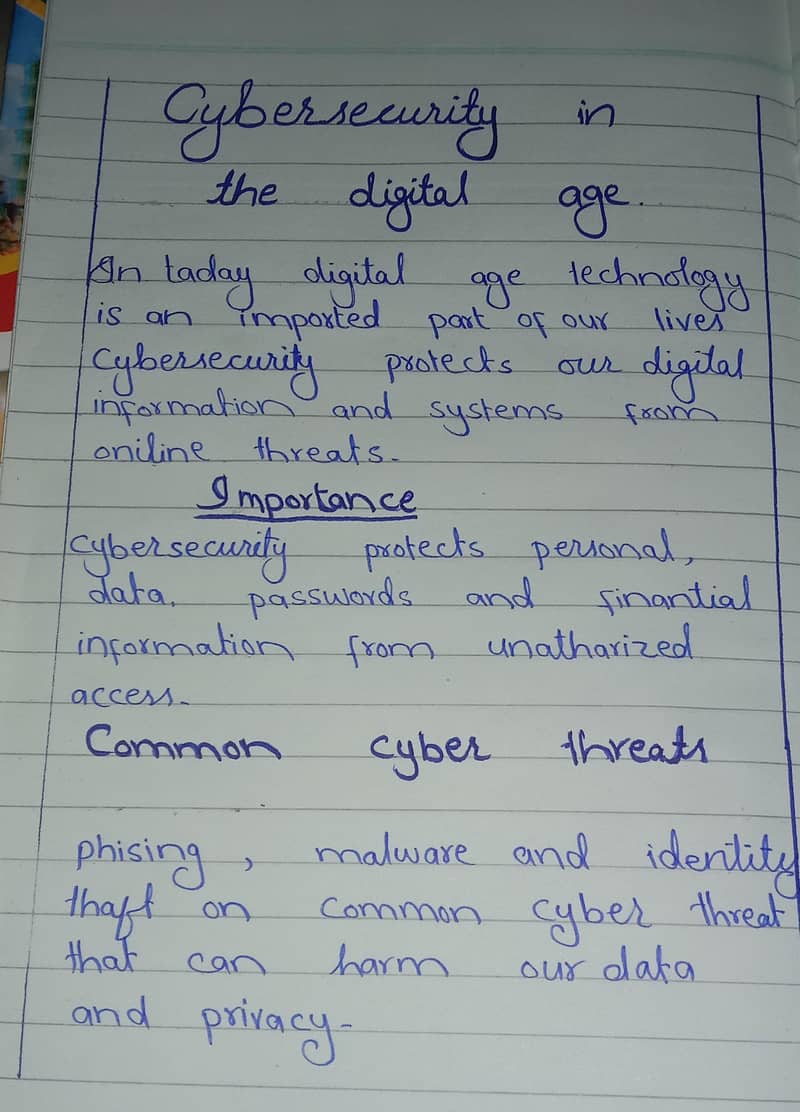 Cybersecurity in
the digital age.
In taday digital age technology
is an imported part of our lives
Cybersecurity protects our digital
information and systems from
oniline threats.
Importance
cybersecurity protects personal,
data, passwords and finantial
information from unatharized
access.
Common cyber threats
phising, malware and identity
thaft on common cyber threat
that can harm our data
and privacy.